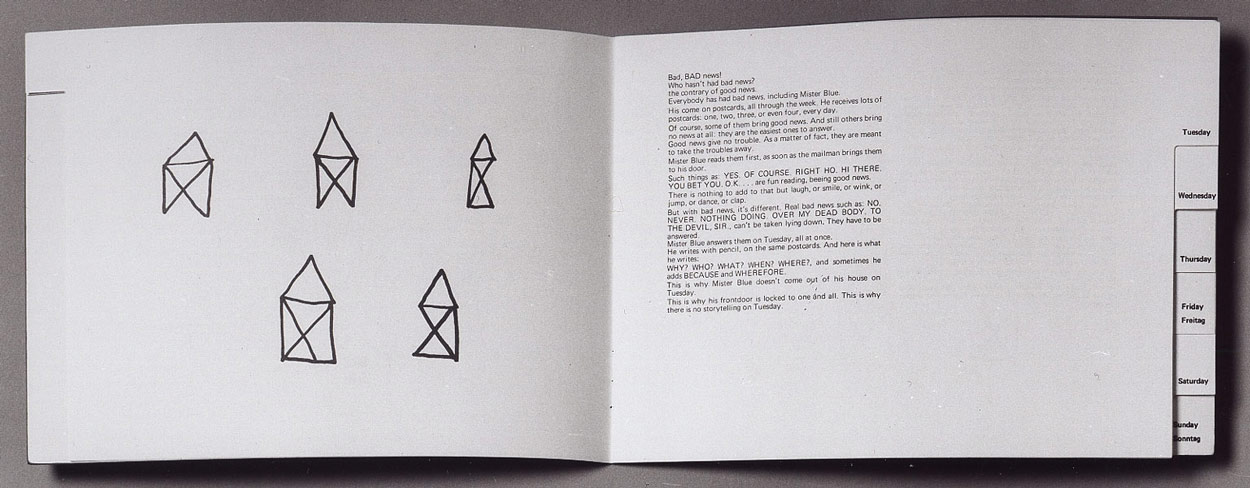 Bad, BAD news!
Who hasn't had bad news?
the contrary of good news.
Everybody has had bad news, including Mister Blue.
His come on postcards, all through the week. He receives lots of
postcards: one, two, three, or even four, every day.
Of course, some of them bring good news. And still others bring
no news at all: they are the easiest ones to answer.
Good news give no trouble. As a matter of fact, they are meant
to take the troubles away.
Mister Blue reads them first, as soon as the mailman brings them
to his door.
Such things as: YES. OF COURSE. RIGHT HO. HI THERE.
YOU BET YOU. O.K. . . . are fun reading, beeing good news.
There is nothing to add to that but laugh, or smile, or wink, or
jump, or dance, or clap.
But with bad news, it's different. Real bad news such as: NO.
NEVER. NOTHING DOING. OVER MY DEAD BODY. TO
THE DEVIL, SIR., can't be taken lying down. They have to be
answered.
Mister Blue answers them on Tuesday, all at once.
He writes with pencil, on the same postcards. And here is what
he writes:
WHY? WHO? WHAT? WHEN? WHERE?, and sometimes he
adds BECAUSE and WHEREFORE.
This is why Mister Blue doesn't come out of his house on
Tuesday.
This is why his frontdoor is locked to one and all. This is why
there is no storytelling on Tuesday.
Tuesday
Wednesday
Thursday
Friday
Freitag
Saturday
Sunday
Sonntag